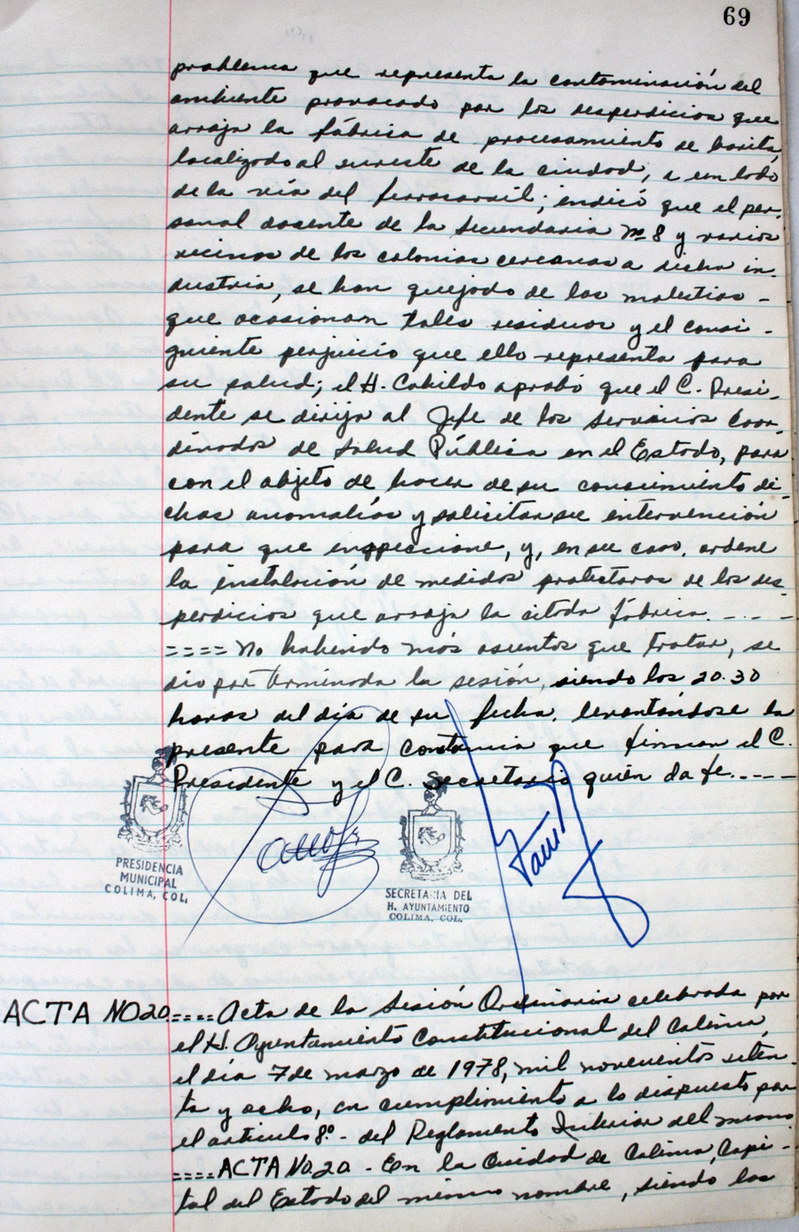 69
problema que representa la contaminación del
ambiente provocado por los desperdicios que
arroja la fábrica de procesamiento de barita,
localizado al sureste de la ciudad, a un lado
de la vía del ferrocarril; indicó que el per-
sonal docente de la Secundaria No 8 y varios
vecinos de las colonias cercanas a dicha in-
dustria, se han quejado de las molestias -
que ocasionan tales residuos y el consi-
guiente perjuicio que ello representa para
su salud; el H. Cabildo aprobó que el C. Presi-
dente se dirija al Jefe de los Servicios Coor-
dinados de Salud Pública en el Estado, para
con el objeto de hacer de su conocimiento di-
chas anomalías y solicitar su intervención
para que inspeccione, y, en su caso, ordene
la instalación de medidas protectoras de los des-
perdicios que arroja la citada fábrica. - - - -
==== No habiendo más asuntos que tratar, se
dio por terminada la sesión, siendo las 20.30
horas del día de su fecha, levantándose la
presente para constancia que firman el C.
Presidente y el C. Secretario quién da fe. - - - -
PRESIDENCIA
MUNICIPAL
COLIMA, COL.
SECRETARIA DEL
H. AYUNTAMIENTO
COLIMA, COL.
ACTA NO. 20 ==== Acta de la Sesión Ordinaria celebrada por
el H. Ayuntamiento Constitucional del Colima,
el día 7 de marzo de 1978, mil novecientos seten-
ta y ocho, en cumplimiento a lo dispuesto por
el artículo 8º - del Reglamento Interior del mismo
==== ACTA No. 20 - En la Ciudad de Colima, Capi-
tal del Estado del mismo nombre, siendo las